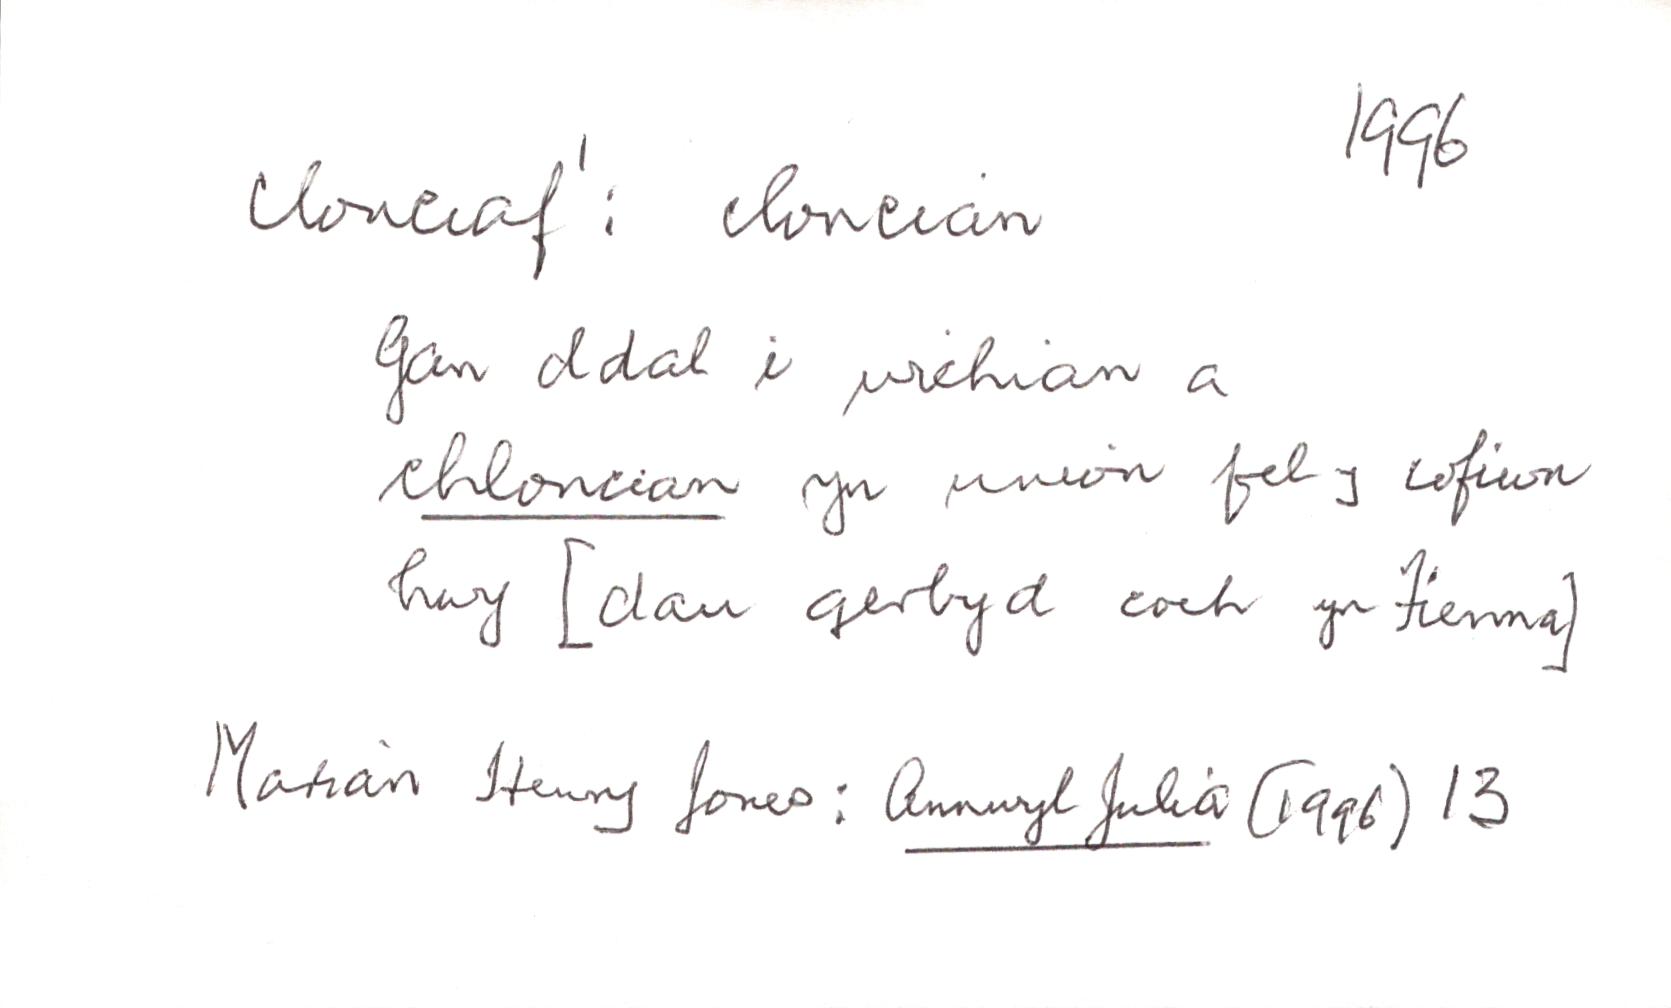 1996
clonciaf¹: cloncian
Gan ddal i wichian a
chloncian yn union fel y cofiwn
hwy [dau gerbyd coch yn Fienna]
Marian Henry Jones: Annwyl Julia (1996) 13